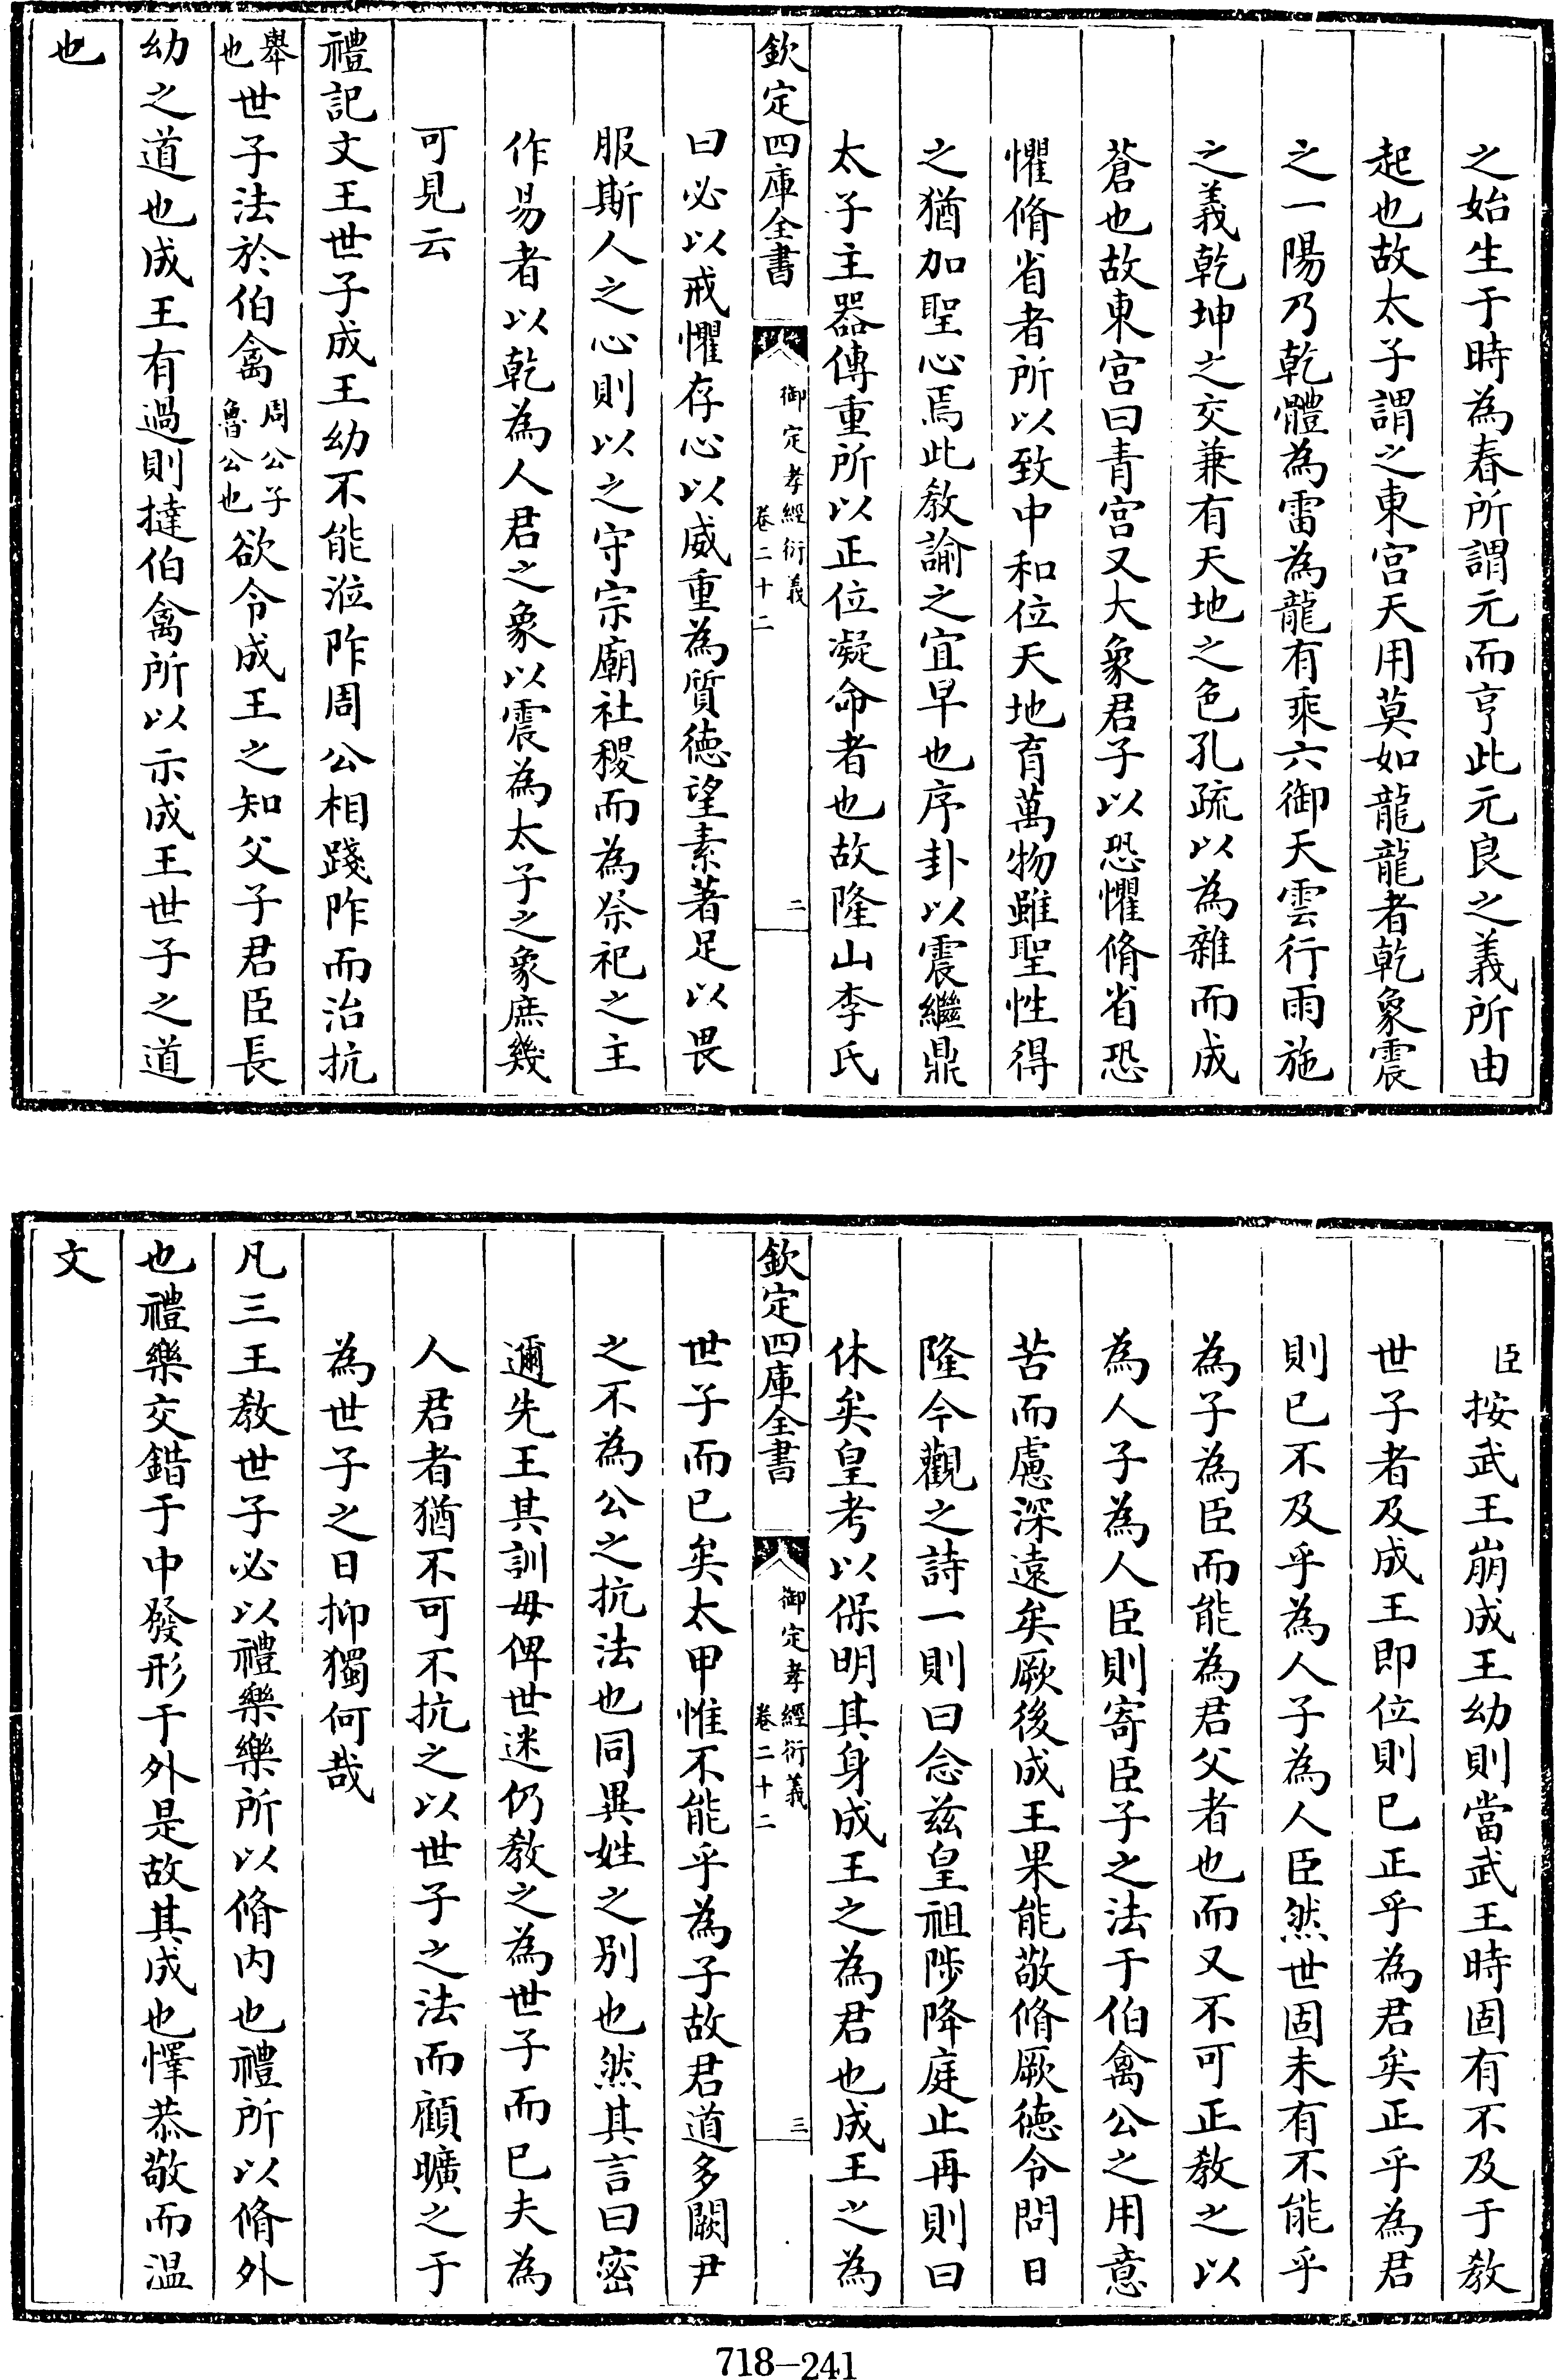 之始生于時為春所謂元而亨此元良之義所由
起也故太子謂之東宮天用莫如龍龍者乾象震
之一陽乃乾體為雷為龍有乘六御天雲行雨施
之義乾坤之交兼有天地之色孔疏以為雜而成
蒼也故東宮曰青宮又大象君子以恐懼脩省恐
懼脩省者所以致中和位天地育萬物雖聖性得
之猶加聖心焉此教諭之宜早也序卦以震繼鼎
太子主器傳重所以正位凝命者也故隆山李氏
欽定四庫全書
御定孝經衍義
卷二十二
二
曰必以戒懼存心以威重為質德望素著足以畏
服斯人之心則以之守宗廟社稷而為祭祀之主
作易者以乾為人君之象以震為太子之象庶幾
可見云
禮記文王世子成王幼不能涖阼周公相踐阼而治抗
舉也世子法於伯禽周公子魯公也欲令成王之知父子君臣長
幼之道也成王有過則撻伯禽所以示成王世子之道
也
臣按武王崩成王幼則當武王時固有不及于教
世子者及成王即位則已正乎為君矣正乎為君
則已不及乎為人子為人臣然世固未有不能乎
為子為臣而能為君父者也而又不可正教之以
為人子為人臣則寄臣子之法于伯禽公之用意
苦而慮深遠矣厥後成王果能敬脩厥德令問日
隆今觀之詩一則曰念茲皇祖陟降庭止再則曰
休矣皇考以保明其身成王之為君也成王之為
欽定四庫全書
御定孝經衍義
卷二十二
三
世子而已矣太甲惟不能乎為子故君道多闕尹
之不為公之抗法也同異姓之別也然其言曰密
邇先王其訓毋俾世迷仍教之為世子而已夫為
人君者猶不可不抗之以世子之法而顧曠之于
為世子之日抑獨何哉
凡三王教世子必以禮樂樂所以脩內也禮所以脩外
也禮樂交錯于中發形于外是故其成也懌恭敬而溫
文
718-241